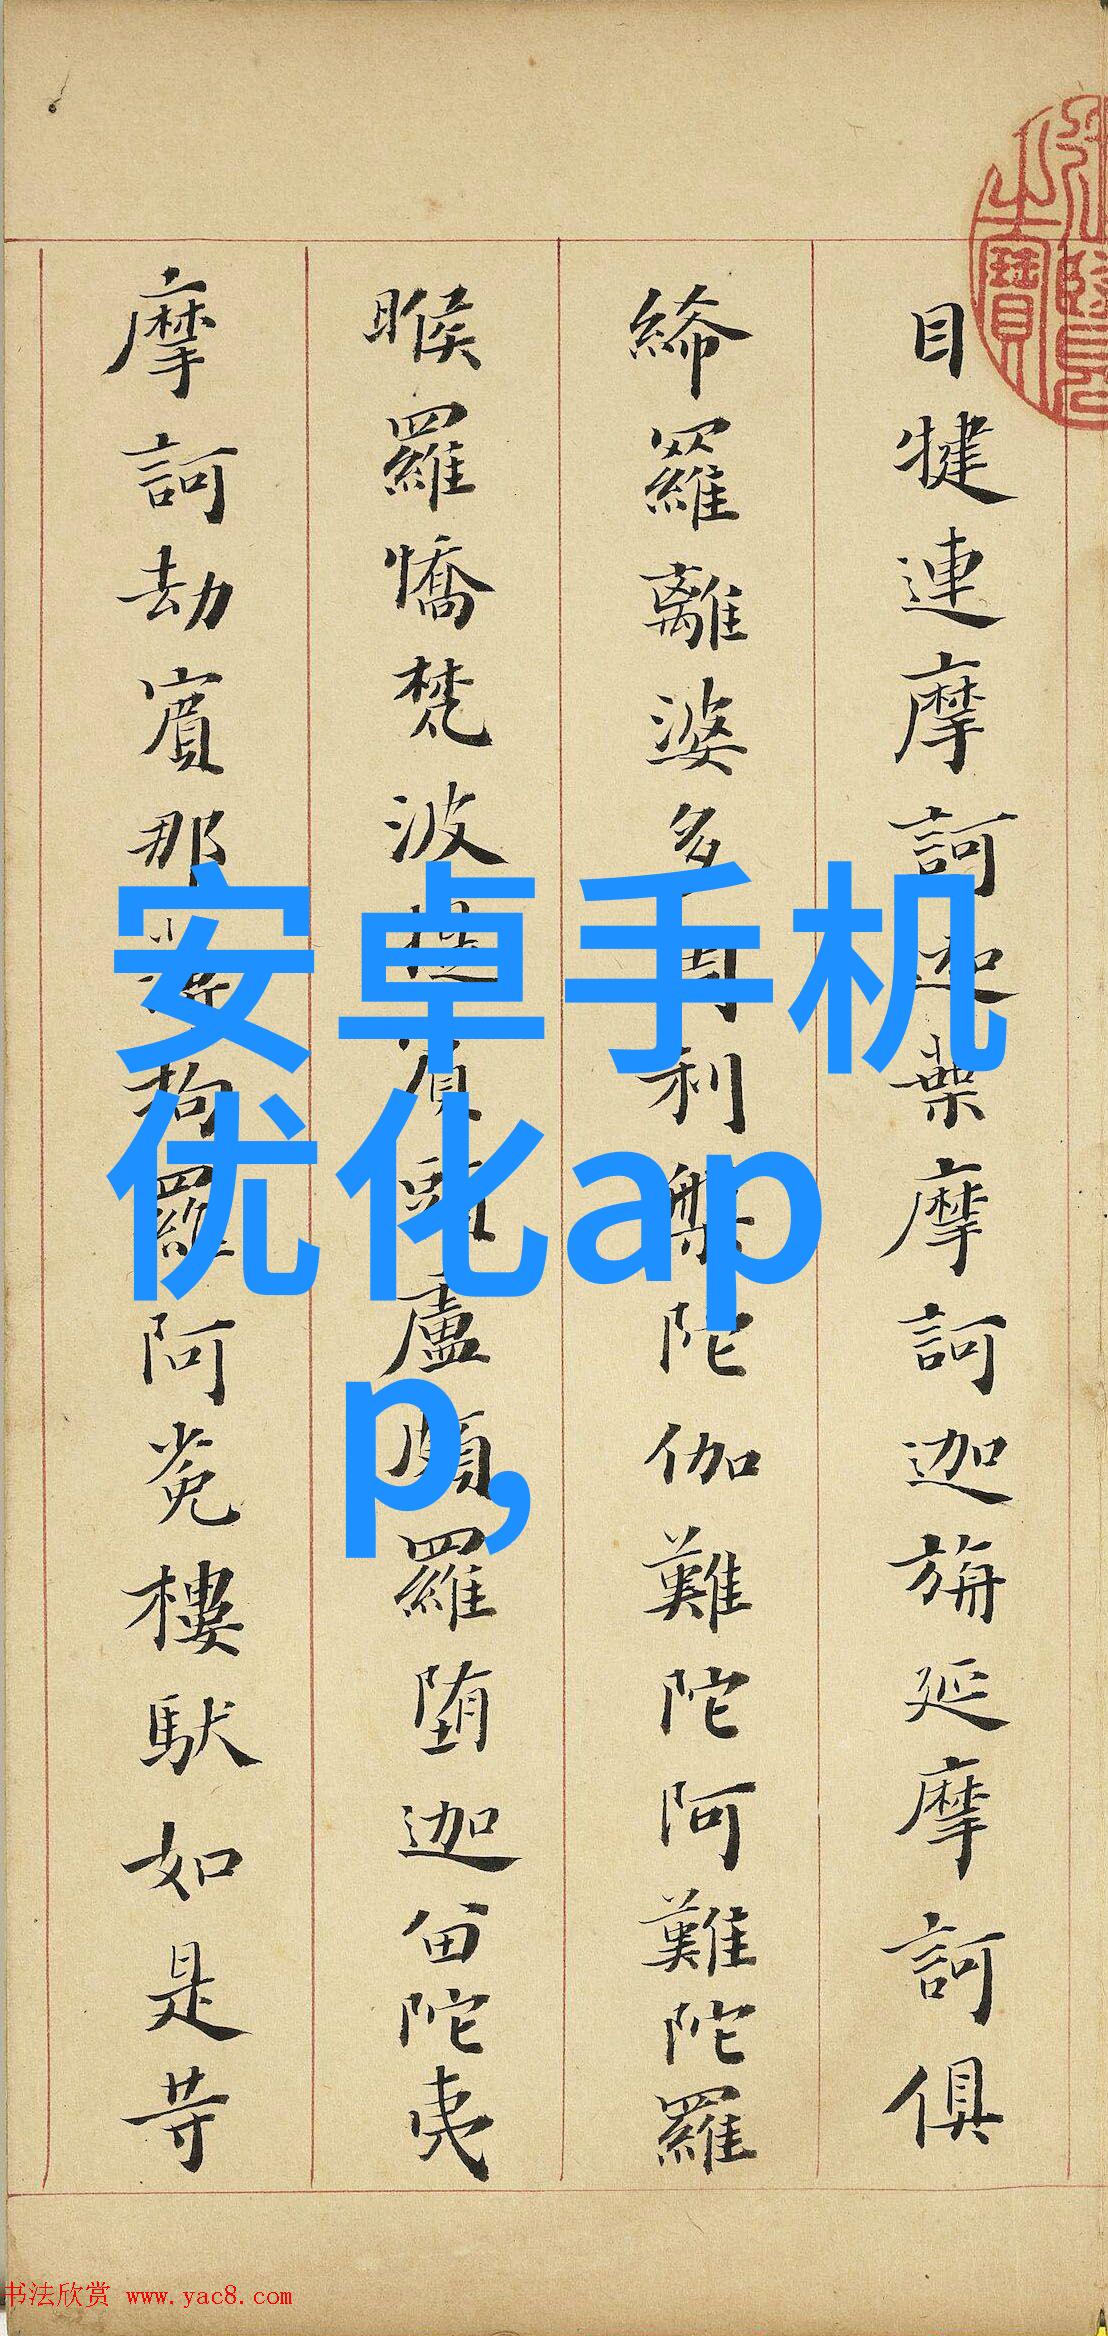 目犍連摩訶迦葉摩訶迦旃延摩訶俱
絺羅離婆多周利槃陀伽難陀阿難陀羅
睺羅憍梵波提賓頭盧頗羅墮迦留陀夷
摩訶劫賓那薄拘羅阿㝹樓馱如是等
安卓手机
优化ap
p,
书法欣赏 www.yac8.com